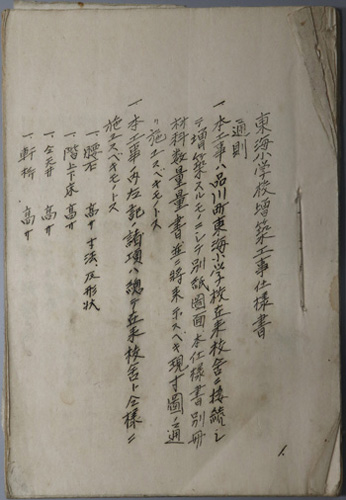 東海小学校増築工事仕様書
通則
一、本工事ハ品川町東海小学校在来校舎ニ接続シ
テ増築スルモノニシテ別紙図面本仕様書別冊
材料数量書並ニ将来示スベキ現寸図ノ通
リ施工スベキモノトス
一、本工事ノ内左記諸項ハ総テ在来校舎ト仝様ニ
施工スベキモノトス
一、腰石 高サ寸法及形状
一、階上下床高サ
一、仝天井 高サ
一、軒桁 高サ